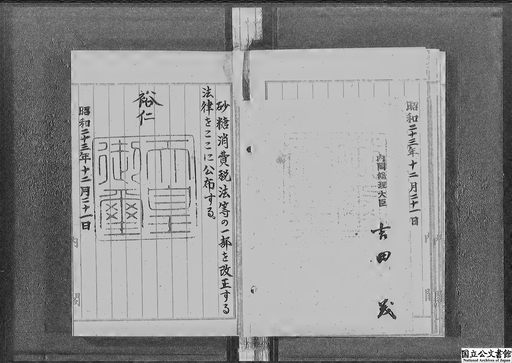 砂糖消費税法等の一部を改正する
法律をここに公布する。
裕仁
天皇
御璽
昭和二十三年十二月二十一日
昭和二十三年十二月二十一日
内閣総理大臣
吉田茂
内閣
国立公文書館
National Archives of Japan